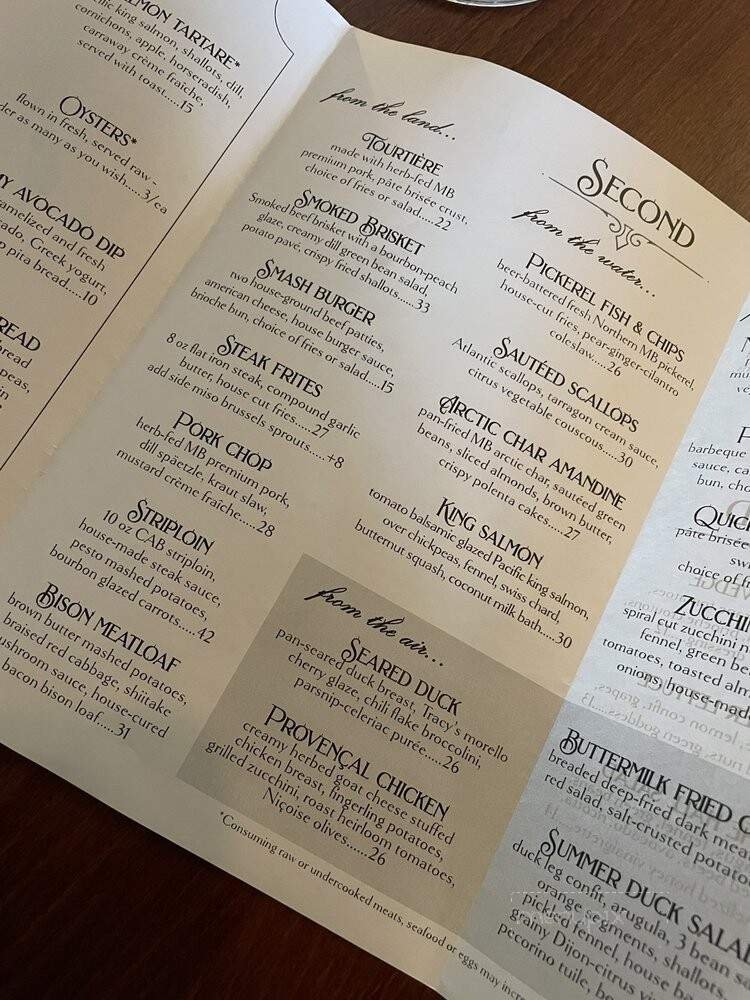 LMON TARTARE*
cific king salmon, shallots, dill,
cornichons, apple, horseradish,
carraway crème fraîche,
served with toast.....15
OYSTERS*
flown in fresh, served raw -
der as many as you wish.....3/ea
Y AVOCADO DIP
ramelized and fresh
cado, Greek yogurt,
p pita bread.....10
READ
bread
peas,
in
from the land...
TOURTIÈRE
made with herb-fed MB
premium pork, pâte brisée crust,
choice of fries or salad.....22
SMOKED BRISKET
Smoked beef brisket with a bourbon-peach
glaze, creamy dill green bean salad,
potato pavé, crispy fried shallots.....33
SMASH BURGER
two house-ground beef patties,
american cheese, house burger sauce,
brioche bun, choice of fries or salad....15
STEAK FRITES
8 oz flat iron steak, compound garlic
butter, house cut fries.....27
add side miso brussels sprouts.....+8
PORK CHOP
herb-fed MB premium pork,
dill späetzle, kraut slaw,
mustard crème fraîche.....28
STRIPLOIN
10 oz CAB striploin,
house-made steak sauce,
pesto mashed potatoes,
bourbon glazed carrots.....42
BISON MEATLOAF
brown butter mashed potatoes,
braised red cabbage, shiitake
mushroom sauce, house-cured
bacon bison loaf.....31
SECOND
from the water...
PICKEREL FISH & CHIPS
beer-battered fresh Northern MB pickerel,
house-cut fries, pear-ginger-cilantro
coleslaw.....26
SAUTÉED SCALLOPS
Atlantic scallops, tarragon cream sauce,
citrus vegetable couscous.....30
ARCTIC CHAR AMANDINE
pan-fried MB arctic char, sautéed green
beans, sliced almonds, brown butter,
crispy polenta cakes.....27
KING SALMON
tomato balsamic glazed Pacific king salmon,
over chickpeas, fennel, swiss chard,
butternut squash, coconut milk bath.....30
from the air...
SEARED DUCK
pan-seared duck breast, Tracy's morello
cherry glaze, chili flake broccolini,
parsnip-celeriac purée.....26
PROVENÇAL CHICKEN
creamy herbed goat cheese stuffed
chicken breast, fingerling potatoes,
grilled zucchini, roast heirloom tomatoes,
Niçoise olives......26
*Consuming raw or undercooked meats, seafood or eggs may incre
barbeque
sauce, ca
bun, cho
QUIC
pâte brisée
swi
choice of f
ZUCCHIN
spiral cut zucchini n
fennel, green bea
tomatoes, toasted alm
onions, house-made
BUTTERMILK FRIED C
breaded deep-fried dark mea
red salad, salt-crusted potato
SUMMER DUCK SALAD
duck leg confit, arugula, 3 bean sa
orange segments, shallots,
pickled fennel, house b
grainy Dijon-citrus vi
pecorino tuile, b